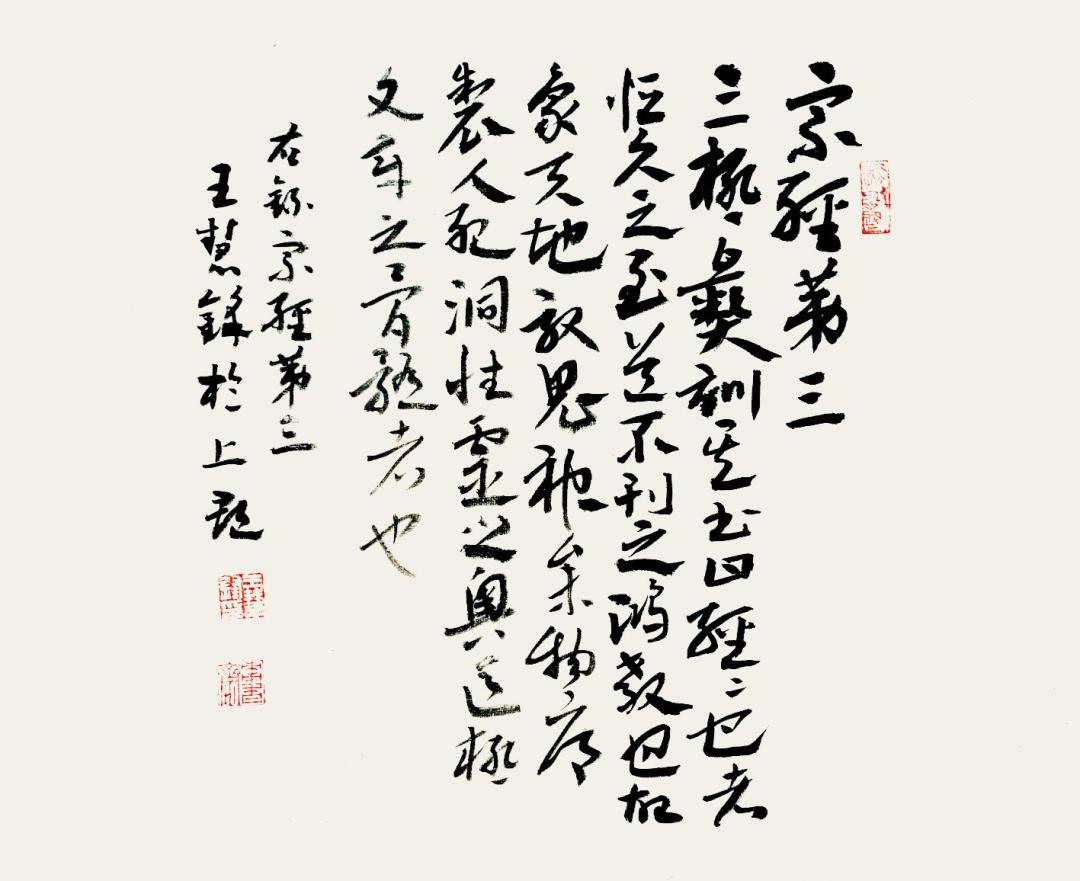 宗經第三
三極彝訓其書曰經〻也者
恒久之至道不刊之鴻教也故
象天地效鬼神參物序
製人紀洞性靈之奧區極
文章之骨髓者也
右錄宗經第三
王慧鋒於上題